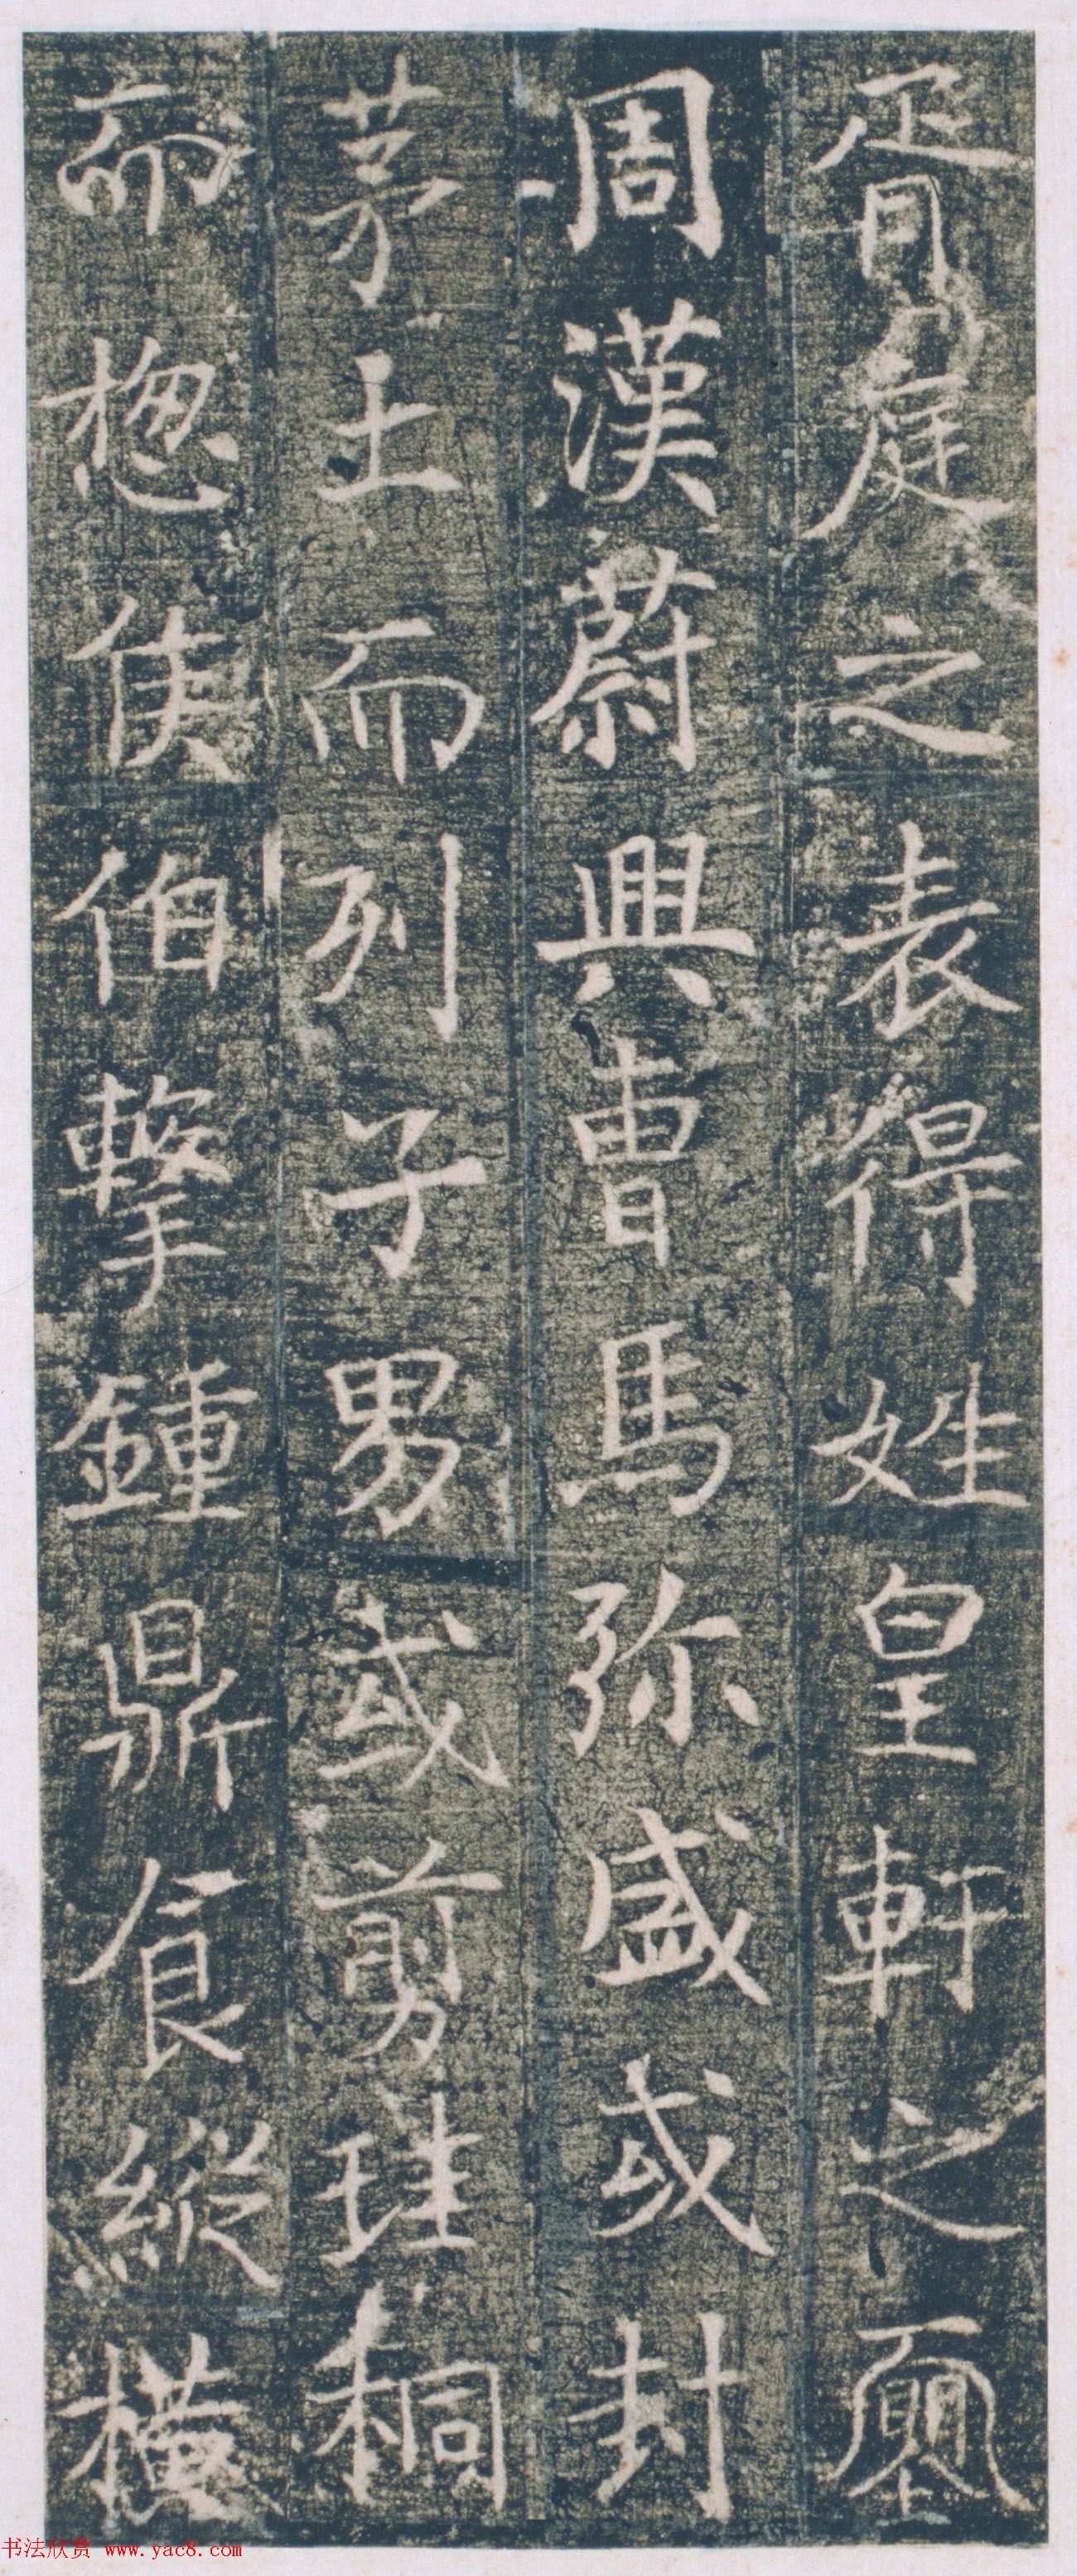 胥庭之表得姓皇軒之
周漢蔚興曹馬弥盛或封
茅土而列子男或剪珪桐
而揔侯伯擊鍾鼎食縱橫
书法欣赏 www.yac8.com